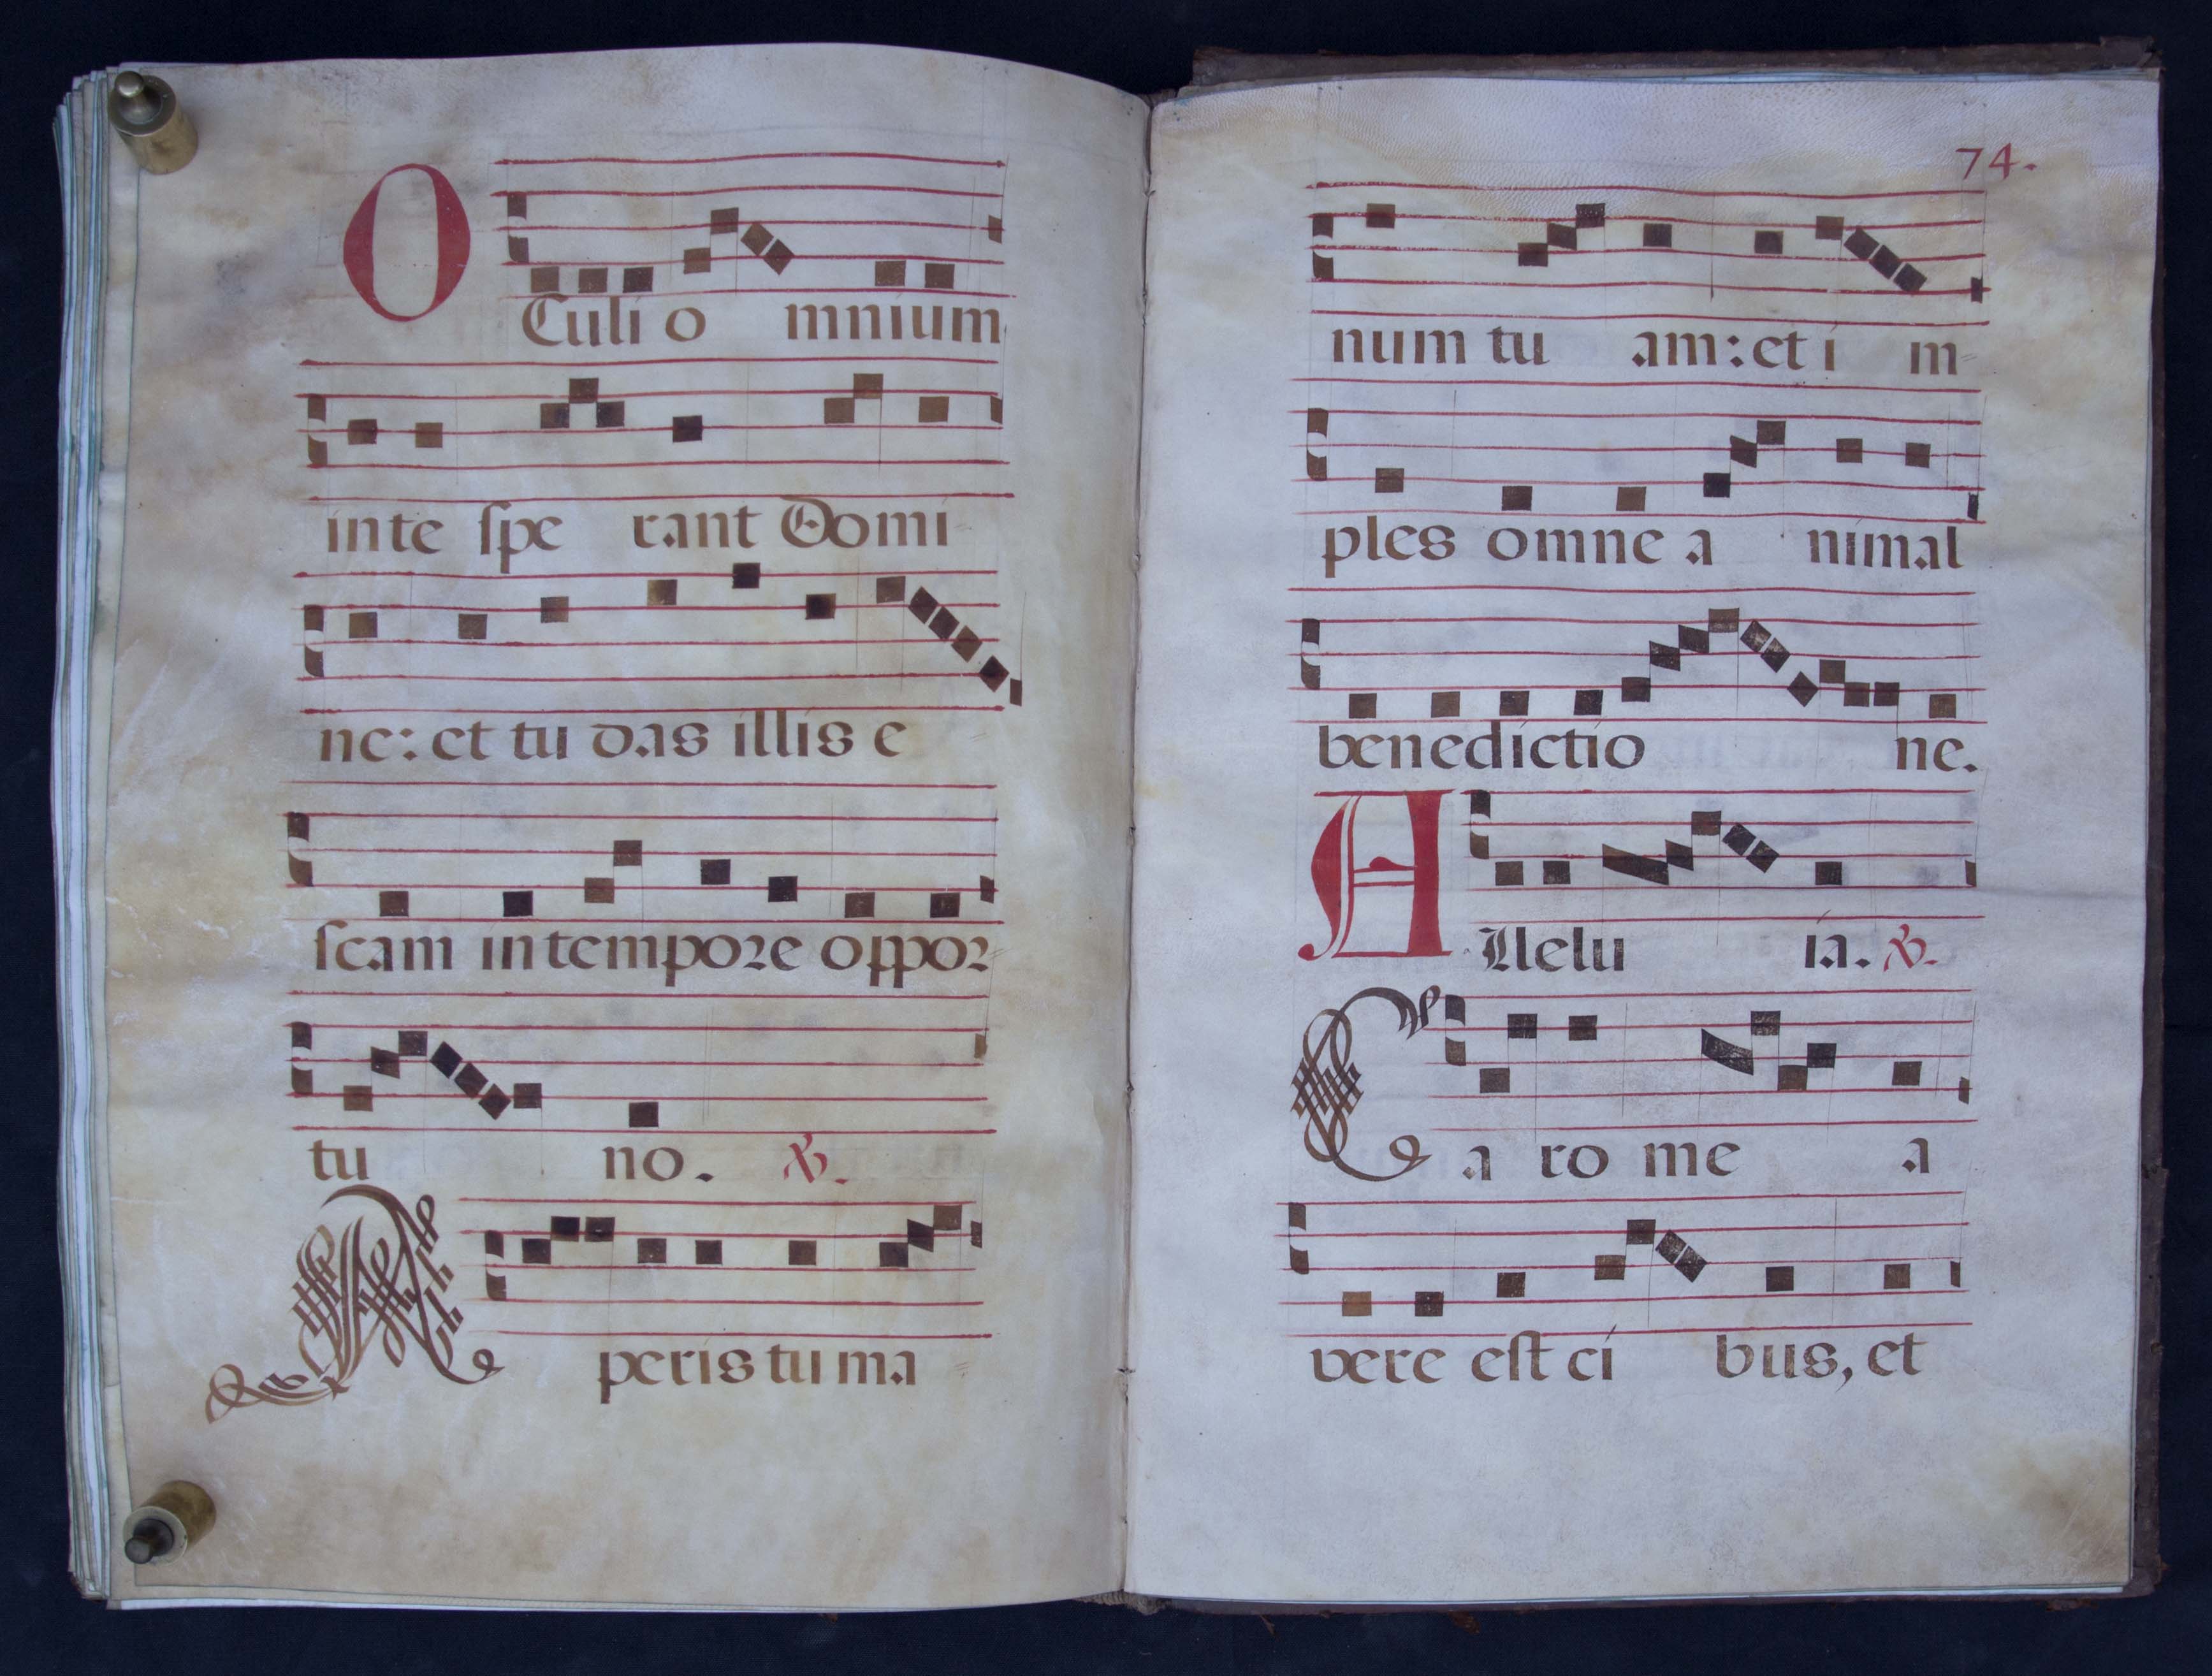 OCuli o mnium
in te ſpe rant Domi
ne: et tu das illis e
ſcam in tempore oppor
tu no. ℣.
Aperis tu ma
74.
num tu am: et i m
ples omne a nimal
benedictio ne.
Allelu ia. ℣.
Caro me a
vere eſt ci bus, et